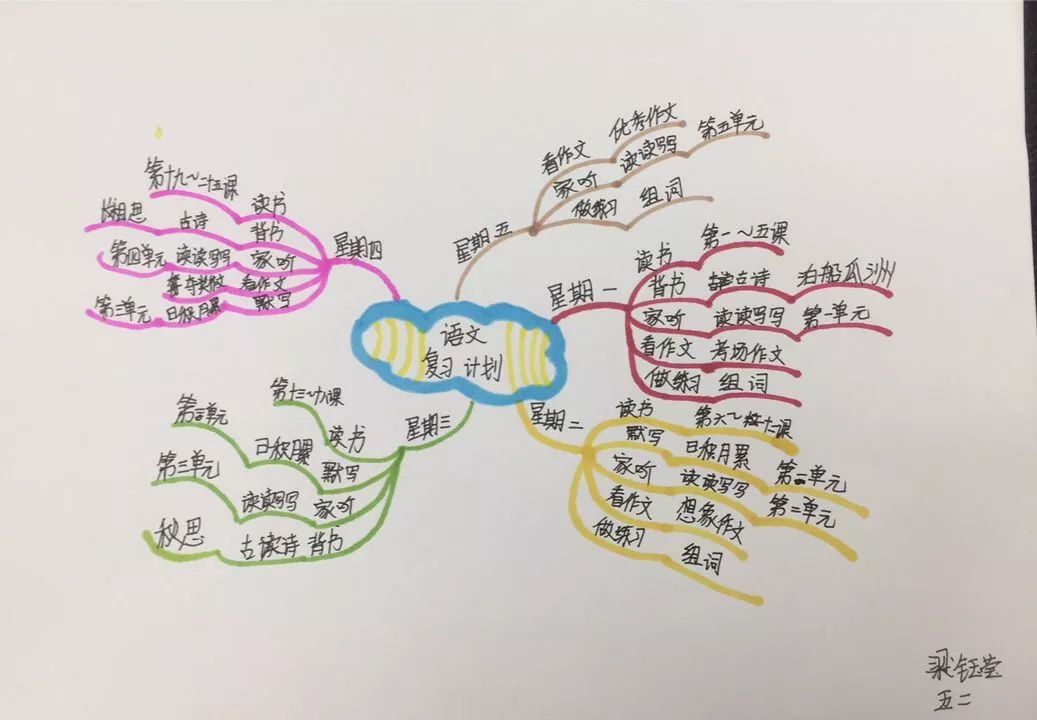 语文
复习计划
星期一
读书 第一~五课
背书 古诗 泊船瓜洲
家听 读读写写 第一单元
看作文 考场作文
做练习 组词
星期二
读书 第六~十课
默写 日积月累 第二单元
家听 读读写写 第二单元
看作文 想象作文
做练习 组词
星期三
读书 第十三~十八课
默写 日积月累 第三单元
家听 读读写写 第三单元
背书 古诗 秋思
星期四
读书 第十九~二十五课
背书 古诗 长相思
家听 读读写写 第四单元
看作文
默写 日积月累 第三单元
星期五
看作文 优秀作文
家听 读读写写 第五单元
做练习 组词
梁钰莹
五二